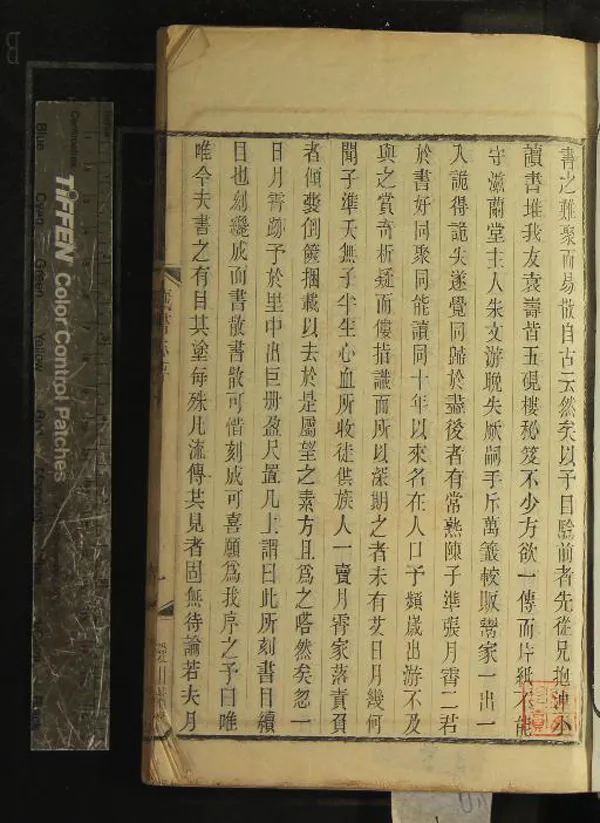 書之難聚而易散自古云然矣以予目驗前者先從兄抱沖小
讀書堆我友袁壽皆五硯樓秘笈不少方欲一傳而片紙不能
守滋蘭堂主人朱文游晚失厥嗣手斥萬籤較販鬻家一出一
入詭得詭失遂覺同歸於盡後者有常熟陳子準張月霄二君
於書好同聚同能讀同十年以來名在人口予頻歲出游不及
與之賞奇析疑而僂指識面所以深期之者未有艾日月幾何
聞子準夭無子半生心血所收徒供族人一賣月霄家落責召
者傾囊倒篋捆載以去於是屬望之素方且為之嗒然矣忽一
日月霄跡予於里中出巨冊盈尺置几上謂曰此所刻書目續
目也刻纔成而書散書散可惜刻成可喜願為我序之予曰唯
唯今夫書之有目其塗每殊凡流傳共見者固無待論若夫月
TIFFEN Color Control Patches
Centimetres
Blue
Cyan
Green
Yellow
B